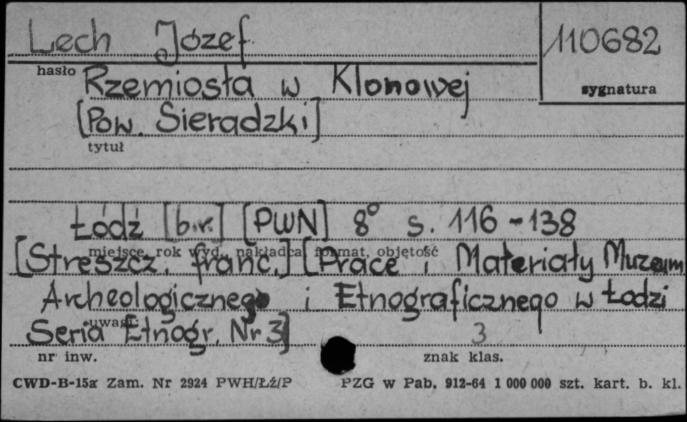 Lech Józef
110682
hasło
sygnatura
Rzemiosła w Klonowej
[Pow. Sieradzki]
tytuł
Łódź [b.r.] [PWN] 8° s. 116-138
miejsce, rok wyd., nakładca, format, objętość
[Streszcz. franc.] [Prace i Materiały Muzeum
Archeologicznego i Etnograficznego w Łodzi
uwagi
Seria Etnogr. Nr 3]
3
nr inw.
znak klas.
CWD-B-15a Zam. Nr 2924 PWH/ŁŹ/P PZG w Pab. 912-64 1 000 000 szt. kart. b. kl.